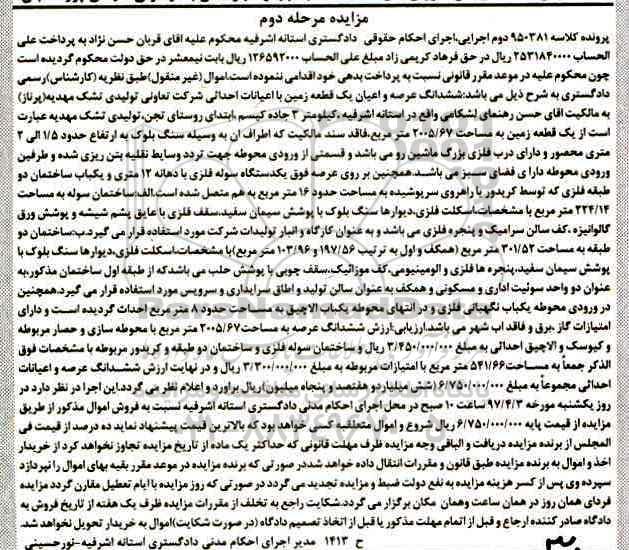 مزایده مرحله دوم
پرونده کلاسه ۹۵۰۳۸۱ دوم اجرایی،اجرای احکام حقوقی دادگستری استانه اشرفیه محکوم علیه اقای قربان حسن نژاد به پرداخت علی
الحساب ۲۵۳۱۸۴۰۰۰۰ ریال در حق فرهاد کریمی زاد مبلغ علی الحساب ۱۲۶۵۹۲۰۰۰ ریال بابت نیمعشر در حق دولت محکوم گردیده است
چون محکوم علیه در موعد مقرر قانونی نسبت به پرداخت بدهی خود اقدامی ننموده است.اموال (غیر منقول)طبق نظریه (کارشناس)رسمی
دادگستری به شرح ذیل می باشد:ششدانگ عرصه و اعیان یک قطعه زمین با اعیانات احداثی شرکت تعاونی تولیدی تشک مهدیه(پرناز)
به مالکیت اقای حسن رهنمای لشکامی واقع در استانه اشرفیه ،کیلومتر ۳ جاده کیسم ،ابتدای روستای تجن،تولیدی تشک مهدیه عبارت
است از یک قطعه زمین به مساحت ۲۰۰۵/۶۷ متر مربع،فاقد سند مالکیت که اطراف ان به وسیله سنگ بلوک به ارتفاع حدود ۱/۵ الی ۲
متری محصور و دارای درب فلزی بزرگ ماشین رو می باشد و قسمتی از ورودی محوطه جهت تردد وسایط نقلیه بتن ریزی شده و طرفین
ورودی محوطه دارا ی فضای سبز می باشد.همچنین بر روی عرصه فوق یکدستگاه سوله فلزی با دهانه ۱۲ متری و یکباب ساختمان دو
طبقه فلزی که توسط کریدور با راهروی سرپوشیده به مساحت حدود ۱۶ متر مربع به هم متصل شده است.الف:ساختمان سوله به مساحت
۲۲۴/۱۴ متر مربع با مشخصات،اسکلت فلزی،دیوارها سنگ بلوک با پوشش سیمان سفید،سقف فلزی با عایق پشم شیشه و پوشش ورق
گالوانیزه ،کف سالن سرامیک و پنجره فلزی می باشد و به عنوان کارگاه و انبار تولیدات شرکت مورد استفاده قرار می گیرد.ب:ساختمان دو
طبقه به مساحت ۳۰۱/۵۲ متر مربع (همکف و اول به ترتیب ۱۹۷/۵۶ و ۱۰۳/۹۶ متر مربع)با مشخصات،اسکلت فلزی،دیوارها سنگ بلوک با
پوشش سیمان سفید،پنجره ها فلزی و الومینیومی،کف موزائیک،سقف چوبی با پوشش حلب می باشد که از طبقه اول ساختمان مذکور،به
عنوان دو واحد سوئیت اداری و مسکونی و همکف به عنوان سالن تولید و اطاق سرایداری و سرویس مورد استفاده قرار می گیرد.همچنین
در ورودی محوطه یکباب نگهبانی فلزی و در انتهای محوطه یکباب الاچیق به مساحت حدود ۸ متر مربع احداث گردیده است و دارای
امتیازات گاز ،برق و فاقد اب شهر می باشد.ارزیابی:ارزش ششدانگ عرصه به مساحت۲۰۰۵/۶۷ متر مربع با محوطه سازی و حصار مربوطه
و کیوسک و الاچیق احداثی به مبلغ ۳/۴۵۰/۰۰۰/۰۰۰ ریال و ساختمان سوله فلزی و ساختمان دو طبقه و کریدور مربوطه با مشخصات فوق
الذکر جمعاً به مساحت۵۴۱/۶۶ متر مربع با امتیازات مربوطه به مبلغ ۳/۳۰۰/۰۰۰/۰۰۰ ریال و در نهایت ارزش ششدانگ عرصه و اعیانات
احداثی مجموعاً به مبلغ ۶/۷۵۰/۰۰۰/۰۰۰ (شش میلیاردو هفتصد و پنجاه میلیون)ریال براورد و اعلام نظر می گردد.این اجرا در نظر دارد در
روز یکشنبه مورخه ۹۷/۴/۳ ساعت ۱۰ صبح در محل اجرای احکام مدنی دادگستری استانه اشرفیه نسبت به فروش اموال مذکور از طریق
مزایده از قیمت پایه ۶/۷۵۰/۰۰۰/۰۰۰ ریال شروع و اموال متعلقبه کسی خواهد بود که بالاترین قیمت پیشنهاد نماید ده درصد از قیمت فی
المجلس از برنده مزایده دریافت و الباقی وجه مزایده ظرف مهلت قانونی که حداکثر یک ماه از تاریخ مزایده تجاوز نخواهد کرد از خریدار
اخذ و اموال به برنده مزایده طبق قانون و مقررات انتقال داده خواهد شد.در صورتی که برنده مزایده در موعد مقرر بقیه بهای اموال را نپردازد
سپرده وی پس از کسر هزینه مزایده به نفع دولت ضبط و مزایده تجدید می گردد در صورتی که روز مزایده با ایام تعطیل مقارن گردد مزایده
فردای همان روز در همان ساعت وهمان مکان برگزار می گردد.شکایت راجع به تخلف از مقررات مزایده ظرف یک هفته از تاریخ فروش به
دادگاه صادر کننده ارجاع و قبل از اتمام مهلت مذکور یا قبل از اتخاذ تصمیم دادگاه (در صورت شکایت)اموال به خریدار تحویل نخواهد شد.
ح ۱۴۱۳ مدیر اجرای احکام مدنی دادگستری استانه اشرفیه-نورحسینی